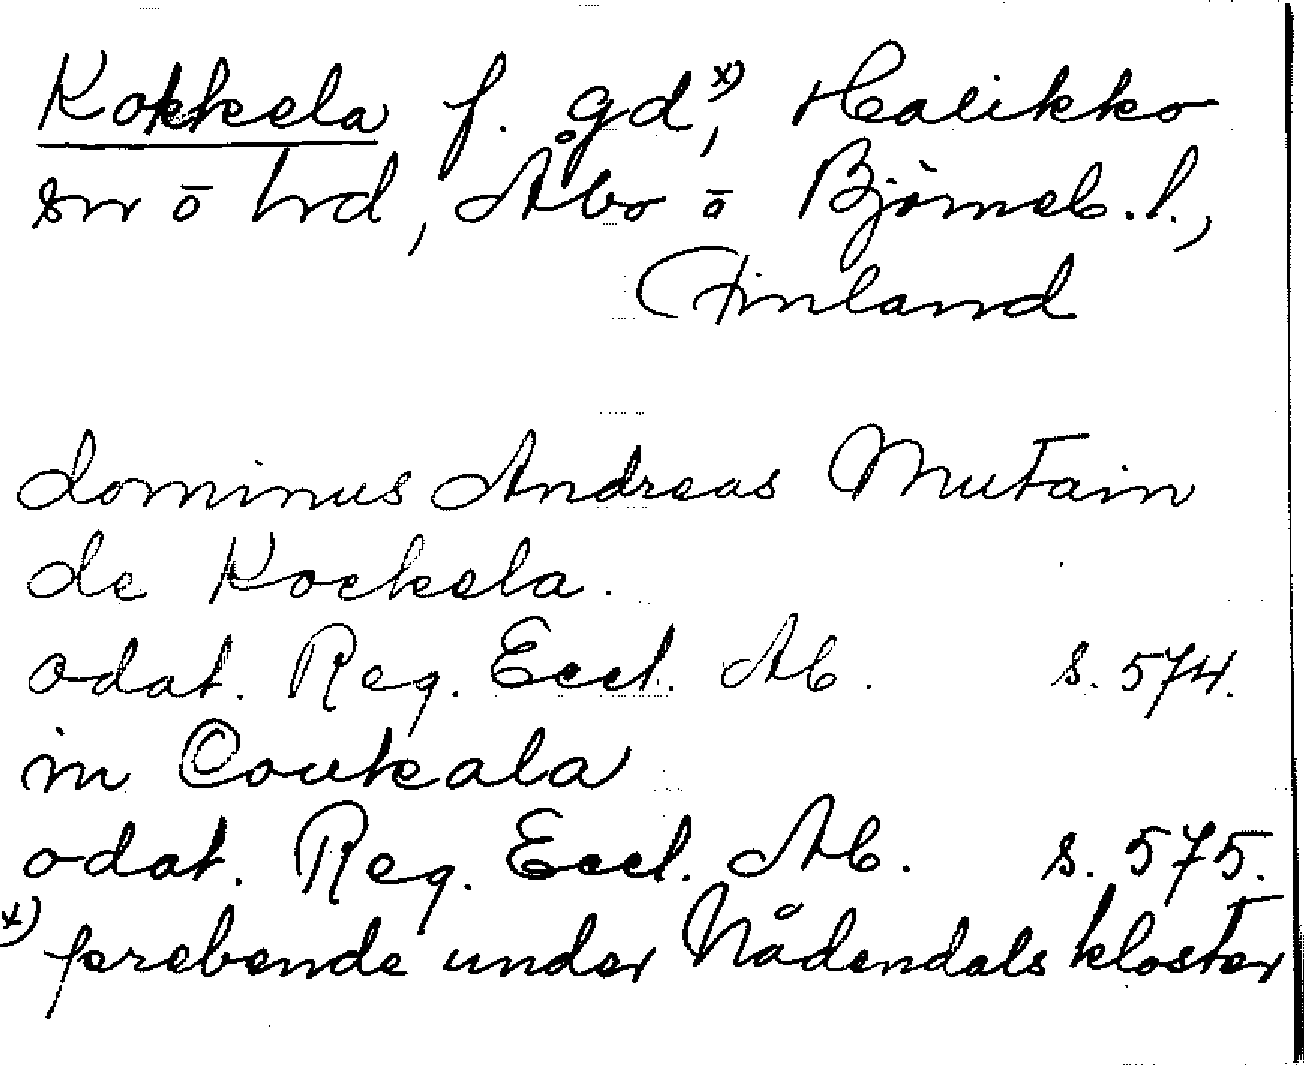 Kokkela f. gd x), Halikko
sn ō hd, Åbo ō Björneb. l.,
Finland
dominus Andreas Mutain
de Kockela.
odat. Reg. Eccl. Ab. s. 574.
in Coukala
odat. Reg. Eccl. Ab. s. 575.
x) prebende under Nådendals kloster